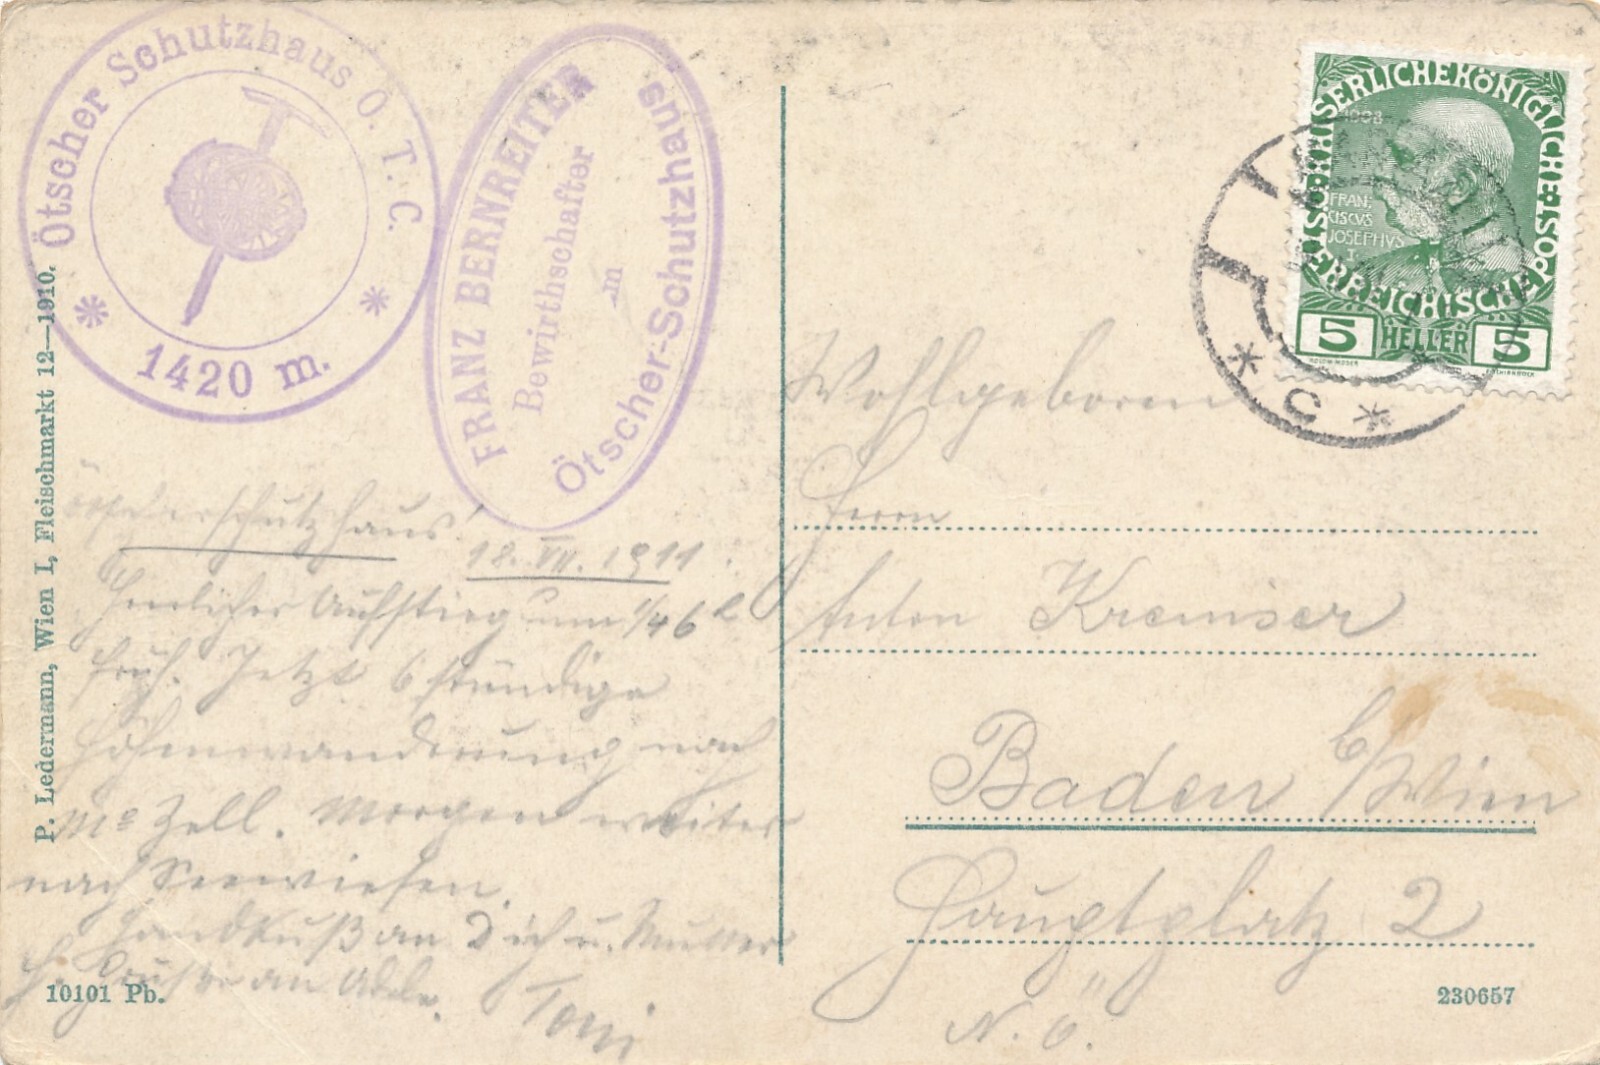 Ötscher Schutzhaus Ö. T. C.
1420 m.
FRANZ BERNREITER
Bewirthschafter
m
Ötscher-Schutzhaus
KAISERLICHEKÖNIGLICHE
ÖSTERREICHISCHE POST
1908
FRAN
CISCVS
JOSEPHVS
I
5 HELLER 5
* C *
P. Ledermann, Wien I, Fleischmarkt 12—1910.
Ötscherschutzhaus!
18. VII. 1911:
Herrlicher Aufstieg um 1/4 6 h
früh. Jetzt 6 stündige
Höhenwanderung nach
Ma Zell. Morgen weiter
nach Seewiesen.
Handkuß an Dich u. Mutter
H. Grüße an Alle.
Toni
Wohlgeboren
Herrn
Anton Kremser
Baden b/Wien
Hauptplatz 2
N. Ö.
10101 Pb.
230657